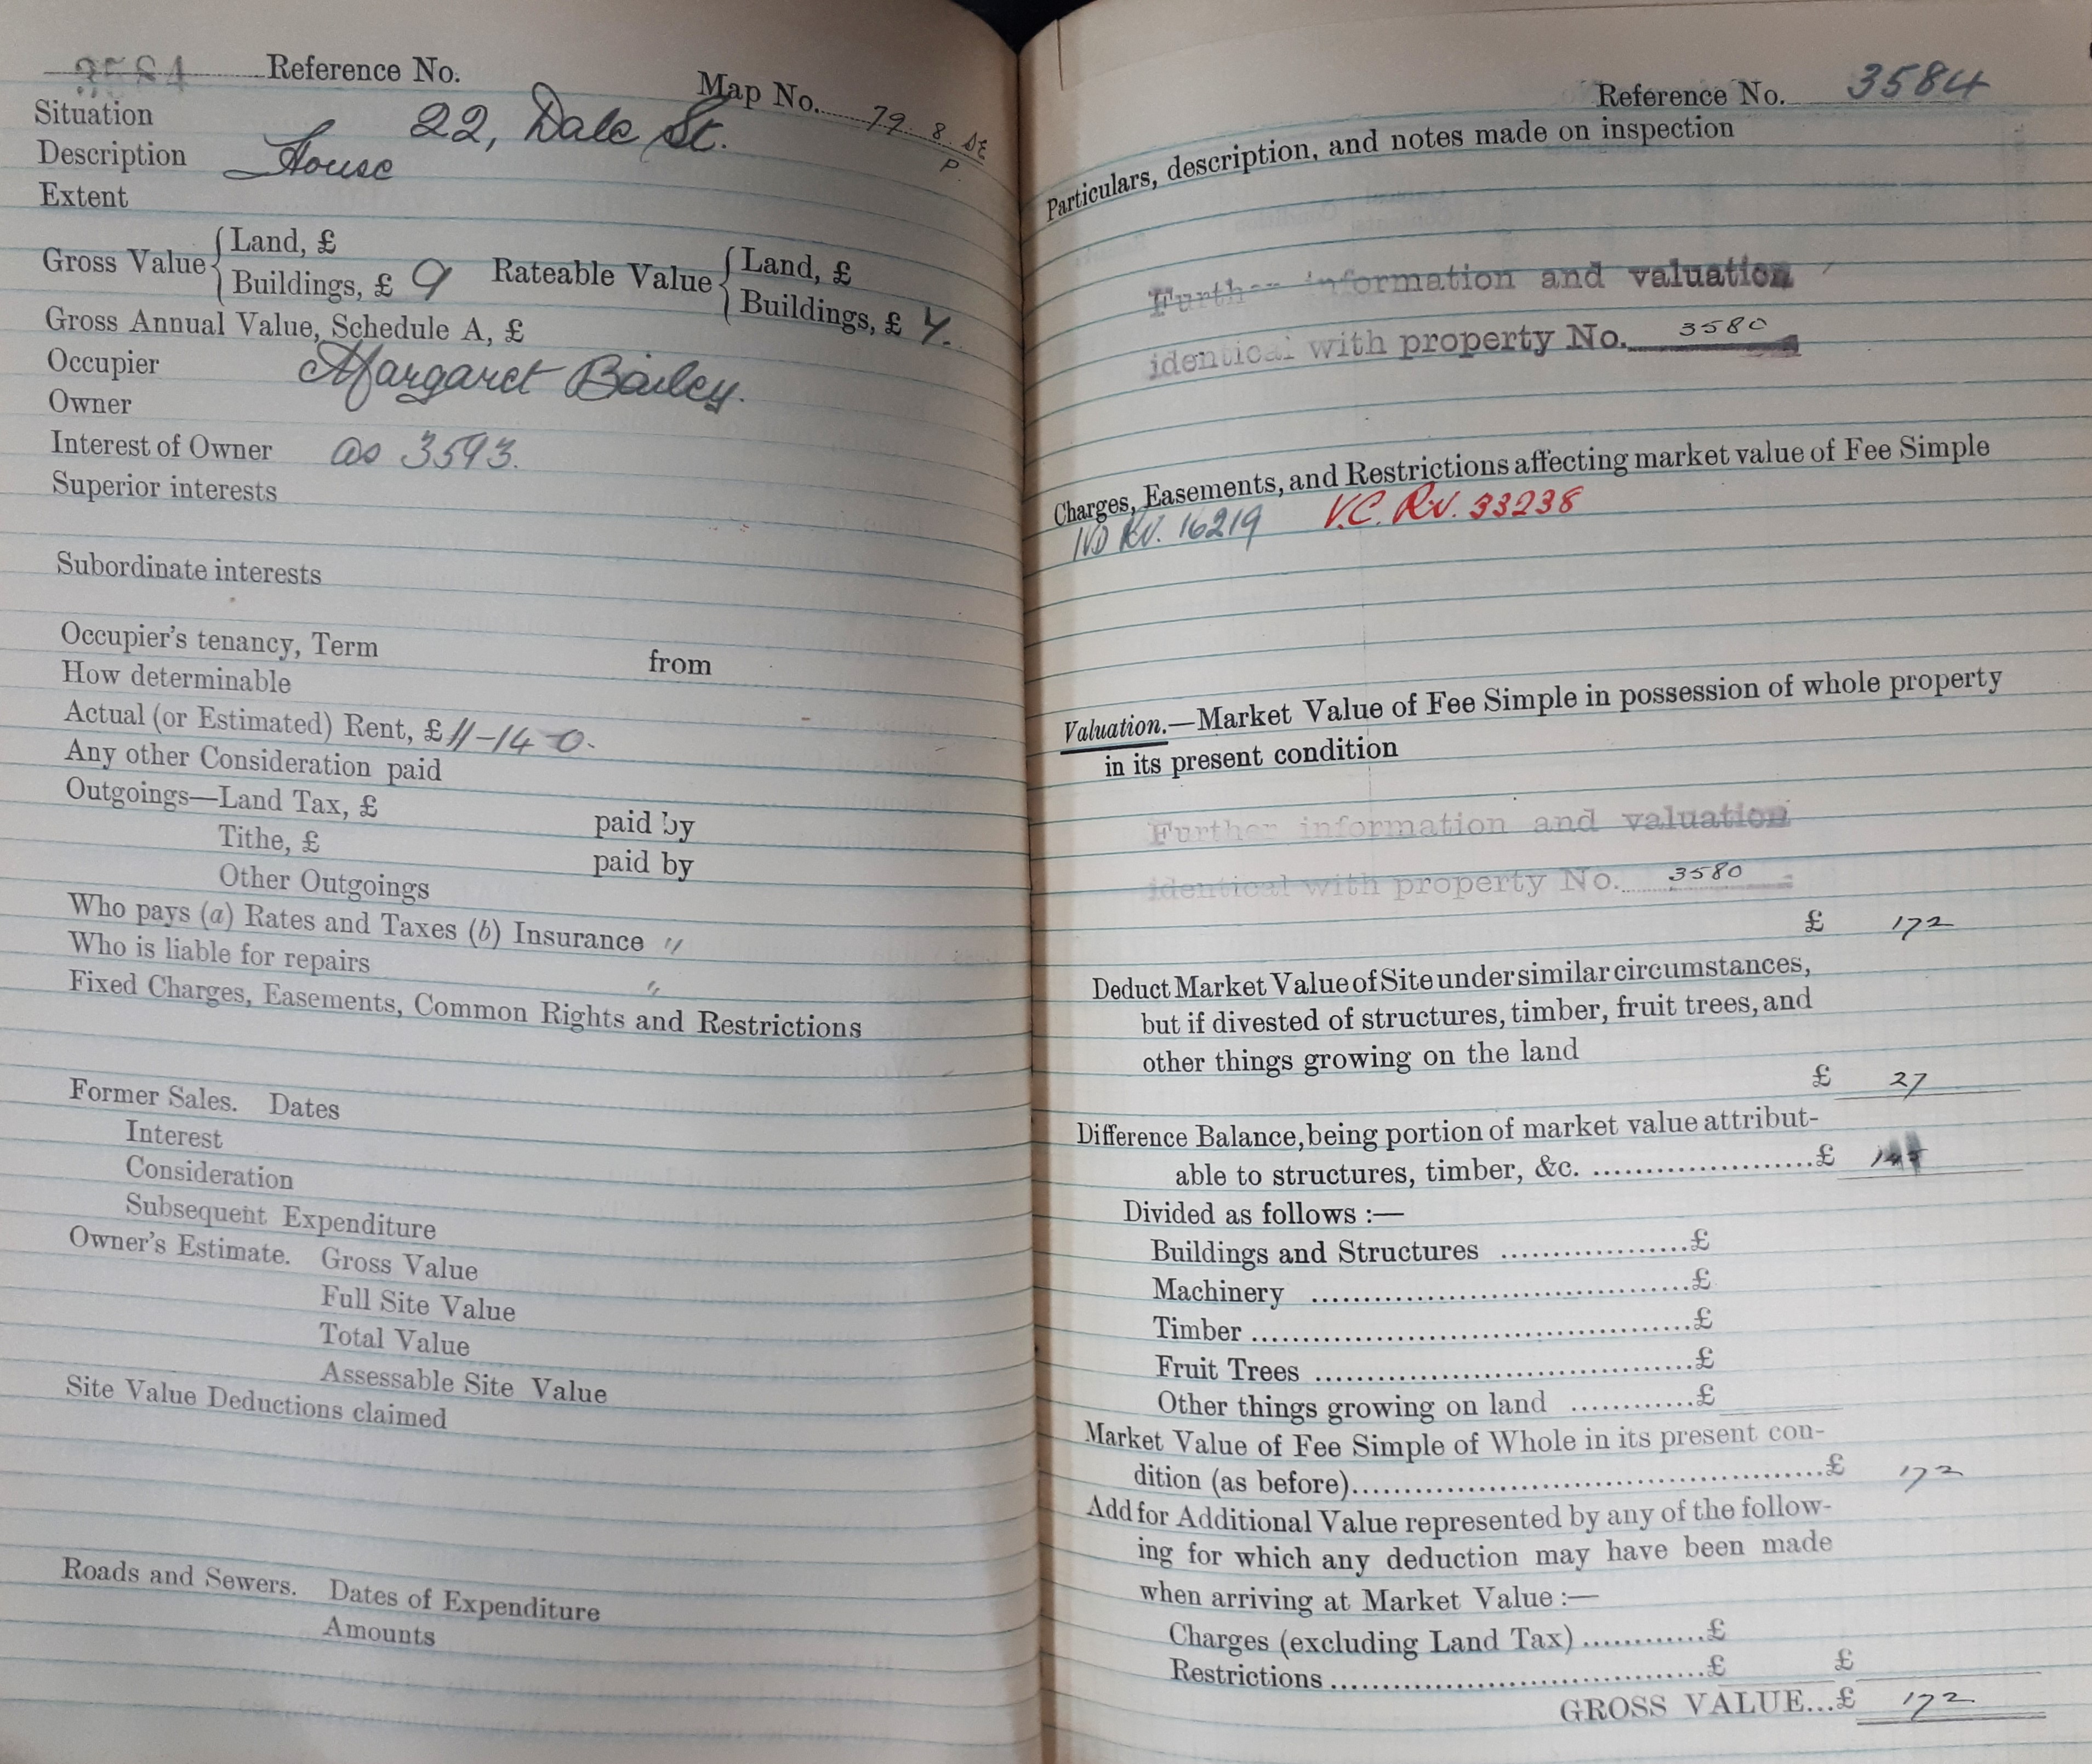 3584 Reference No. Map No. 79. 8. SE
P.
Situation 22, Dale St.
Description House
Extent
Gross Value { Land, £
Buildings, £ 9 Rateable Value { Land, £
Buildings, £ 7.
Gross Annual Value, Schedule A, £
Occupier Margaret Bailey.
Owner
Interest of Owner as 3593.
Superior interests
Subordinate interests
Occupier's tenancy, Term from
How determinable
Actual (or Estimated) Rent, £ 11-14-0.
Any other Consideration paid
Outgoings—Land Tax, £ paid by
Tithe, £ paid by
Other Outgoings
Who pays (a) Rates and Taxes (b) Insurance "
Who is liable for repairs "
Fixed Charges, Easements, Common Rights and Restrictions
Former Sales. Dates
Interest
Consideration
Subsequent Expenditure
Owner's Estimate. Gross Value
Full Site Value
Total Value
Assessable Site Value
Site Value Deductions claimed
Roads and Sewers. Dates of Expenditure
Amounts
Reference No. 3584
Particulars, description, and notes made on inspection
Further information and valuation
identical with property No. 3580
Charges, Easements, and Restrictions affecting market value of Fee Simple
RV. 16219 V.C. RV. 33238
Valuation.—Market Value of Fee Simple in possession of whole property
in its present condition
Further information and valuation
identical with property No. 3580
£ 172
Deduct Market Value of Site under similar circumstances,
but if divested of structures, timber, fruit trees, and
other things growing on the land
£ 27
Difference Balance, being portion of market value attribut-
able to structures, timber, &c. ......................£ 145
Divided as follows :—
Buildings and Structures ..................£
Machinery ....................................£
Timber ..........................................£
Fruit Trees ....................................£
Other things growing on land ............£
Market Value of Fee Simple of Whole in its present con-
dition (as before)..............................................£ 172
Add for Additional Value represented by any of the follow-
ing for which any deduction may have been made
when arriving at Market Value :—
Charges (excluding Land Tax) ............£
Restrictions ....................................£ £
GROSS VALUE...£ 172